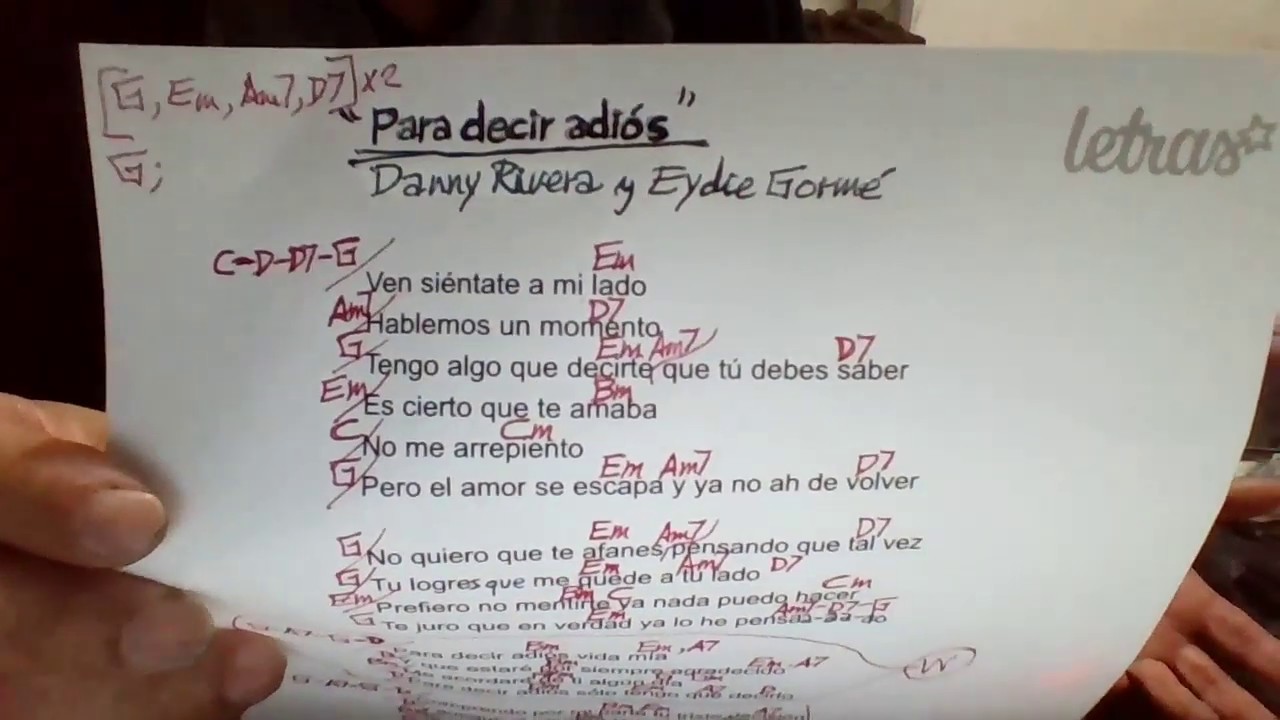 [G, Em, Am7, D7] x2
G;
"Para decir adiós"
Danny Rivera y Eydie Gormé
letras
C-D-D7-G Em
Ven siéntate a mi lado
Am7 D7
Hablemos un momento
G Em Am7 D7
Tengo algo que decirte que tú debes saber
Em Bm
Es cierto que te amaba
C Cm
No me arrepiento
G Em Am7 D7
Pero el amor se escapa y ya no ah de volver
G Em Am7 D7
No quiero que te afanes pensando que tal vez
G Em Am7 D7
Tu logres que me quede a tu lado
Em Bm C Cm
Prefiero no mentirte ya nada puedo hacer
G Em Am7-D7-G
Te juro que en verdad ya lo he pensaa-aa-do
Bm Em, A7
Para decir adiós vida mía
Em A7
Y que estaré por siempre agradecido
Me acordaré de ti algún día
A7
Para decir adiós sólo tengo que decirlo